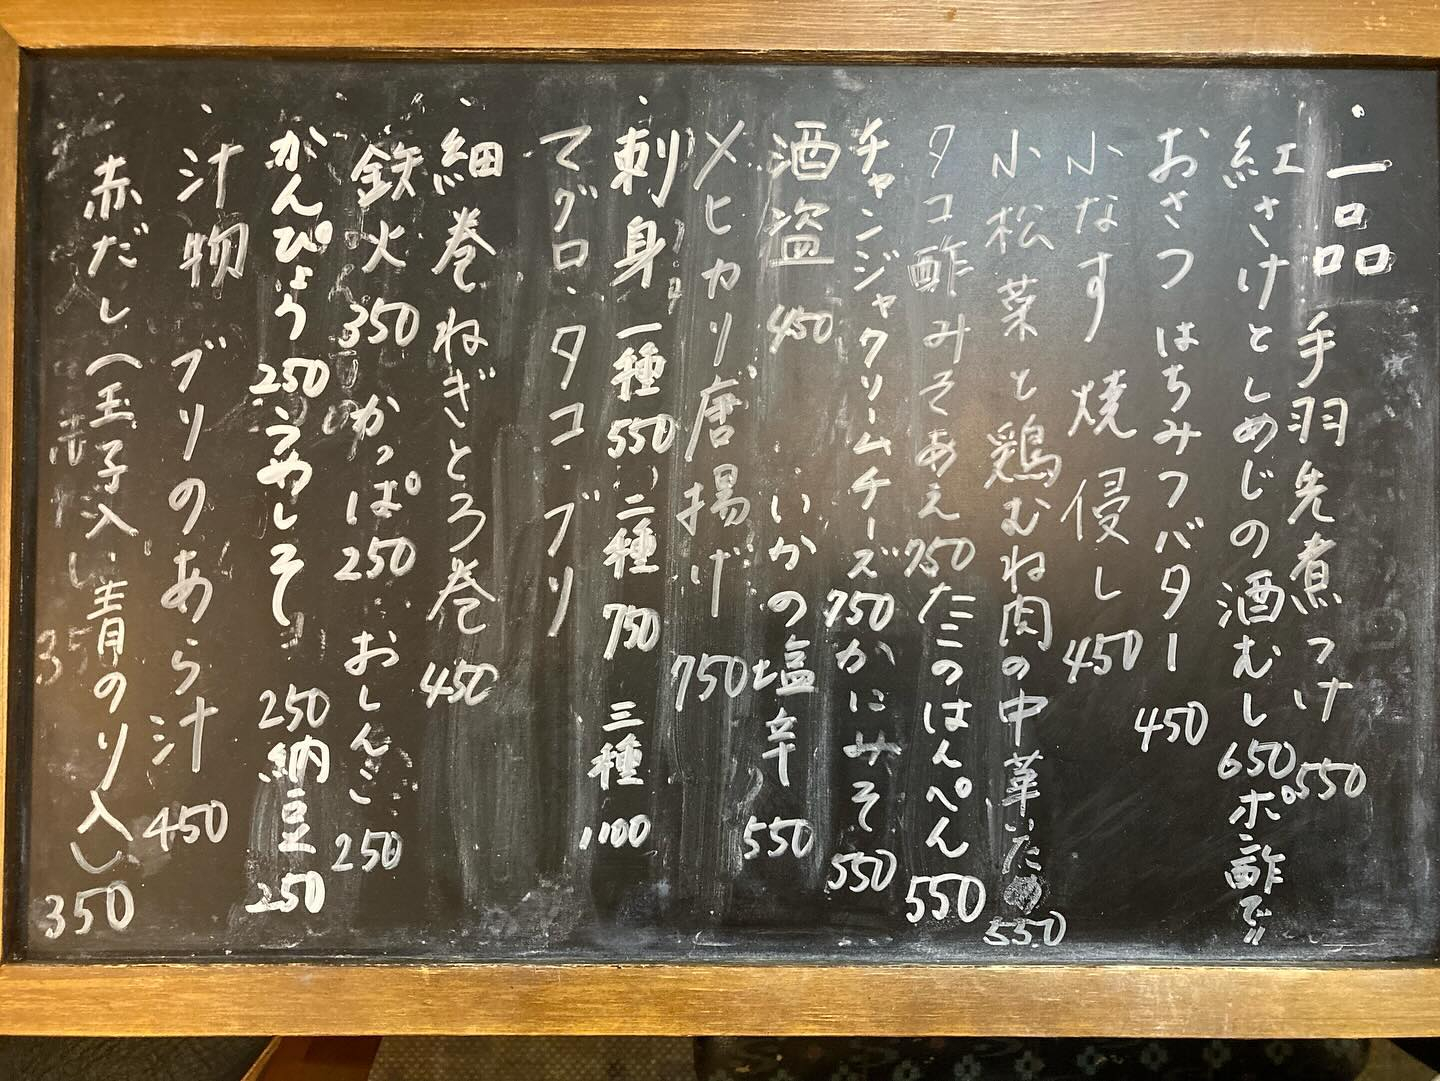 ・一品 手羽先煮つけ 550
紅さけとしめじの酒むし 650 ポン酢で〃
おさつ はちみつバター 450
小なす 焼侵し 450
小松菜と鶏むね肉の中華いため 550
タコ酢みそあえ 750 たこのはんぺん 550
チャンジャクリームチーズ 750 かにみそ 550
酒盗 450 いかの塩辛 550
メヒカリ唐揚げ 750
・刺身 一種 550 二種 750 三種 1100
マグロ・タコ・ブリ
・細巻 ねぎとろ巻 450
鉄火 350 かっぱ 250 おしんこ 250
かんぴょう 250 うめしそ 250 納豆 250
・汁物 ブリのあら汁 450
赤だし(玉子入い青のり入い) 350